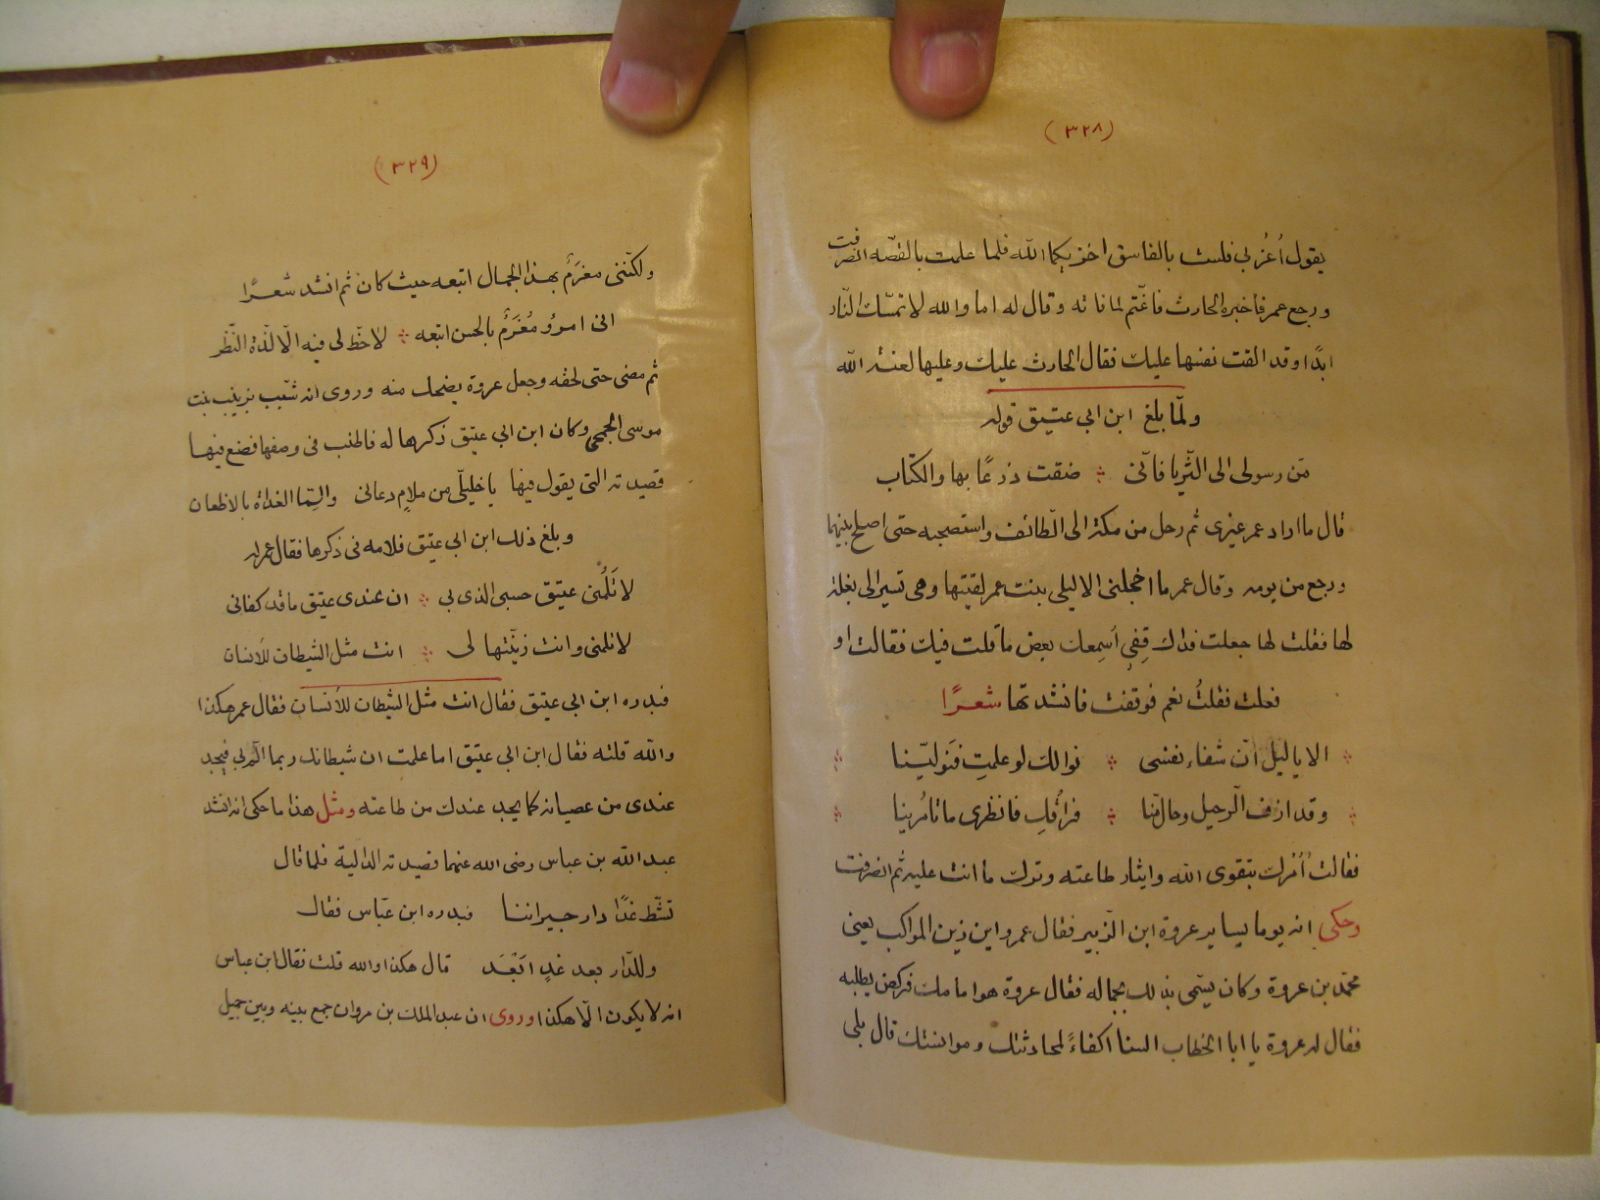 (٣٢٨)
يقول اُعْزُبي فلست بالفاسق اخزيكما الله فلما علمت بالقصّه انصرفت
ورجع عمر فاخبره الحارث فاغتم لما فاته وقال له اما والله لا تمسّك النّار
ابدًا وقد القت نفسها عليك فقال الحارث عليك وعليها لعنة الله
ولمّا بلغ ابن ابي عتيق قوله
مَن رسولى الى الثّريا فاَنّى ضقت ذرعًا بها والكتاب
قال ما اراد عمر غيرى ثم رحل من مكة الى الطائف واستصحبه حتى اصلح بينهما
ورجع من يومه وقال عمر ما اخجلنى الا ليلى بنت عمر لقيتها وهى تسير الى بغلة
لها فقلت لها جعلت فداك قِفِي اُسمِعك بعض ما قلت فيك فقالت او
فعلت فقلتُ نعم فوقفت فانشدتها شعرًا
الا يا ليل اَنّ شفاء نفسى نوالك لو علمتِ فَنَوليّنا
وقد ازف الرحيل وحال منّا فراقُكِ فانظرى ما تامُرينا
فقالت اُمُرك بتقوى الله وايثار طاعته وترك ما انت عليه ثم انصرفت
وحكى انه يوما يساير عروة ابن الزبير فقال عمر واين زين المواكب يعنى
محمّد بن عروة وكان يسمّى بذلك بجماله فقال عروة هو امامك فركض يطلبه
فقال له عروة يا ابا الخطاب السنا اكفاءً لمحادثتك وموانستك قال بلى
(٣٢٩)
ولكّننى مغرَمٌ بهذا الجمال اتبعه حيث كان ثم انشد شعرًا
انى امروٌ مُغرَمٌ بالحسن اتبعه لا حَظّ لى فيه الّا لذّة النّظر
ثم مضى حتى لحقه وجعل عروة يضحك منه وروى انه شبّب بزينب بنت
موسى الجمحى وكان ابن ابي عتيق ذكرها له فاطنب فى وصفها فصنع فيها
قصيدته التى يقول فيها يا خليلّى من ملامٍ دعانى والِمّا الغداة بالاظعان
وبلغ ذلك ابن ابي عتيق فلامه فى ذكرها فقال عمر له
لا تَلُمْنى عتيق حسبى الذى بي ان عندى عتيق ما قد كفانى
لا تلمنى وانت زيّنتها لى انت مثل الشيطان للأنسان
فبدره ابن ابي عتيق فقال انت مثل الشيطان للأنسان فقال عمر هكذا
والله قلته فقال ابن ابي عتيق اما علمت ان شيطانك ربما الّم بي فيجد
عندى من عصيانه كما يجد عندك من طاعته ومثل هذا ما حكى انه انشد
عبد الله بن عباس رضى الله عنهما قصيدته الدالية فلما قال
تشّط غدًا دار جيراننا فبدره ابن عبّاس فقال
وللدّار بعد غدٍ اَبْعَد قال هكذا والله قلت فقال ابن عباس
انه لا يكون الّا هكذا وروى ان عبد الملك بن مروان جمع بينه وبين جميل